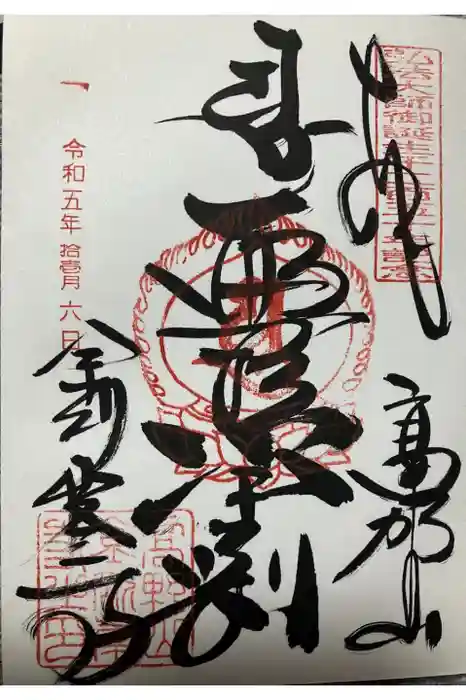 弘法大師御誕生千二百五十年記念
奉拝
高野山
遍照金剛
一
令和五年拾壱月六日
金剛峯寺